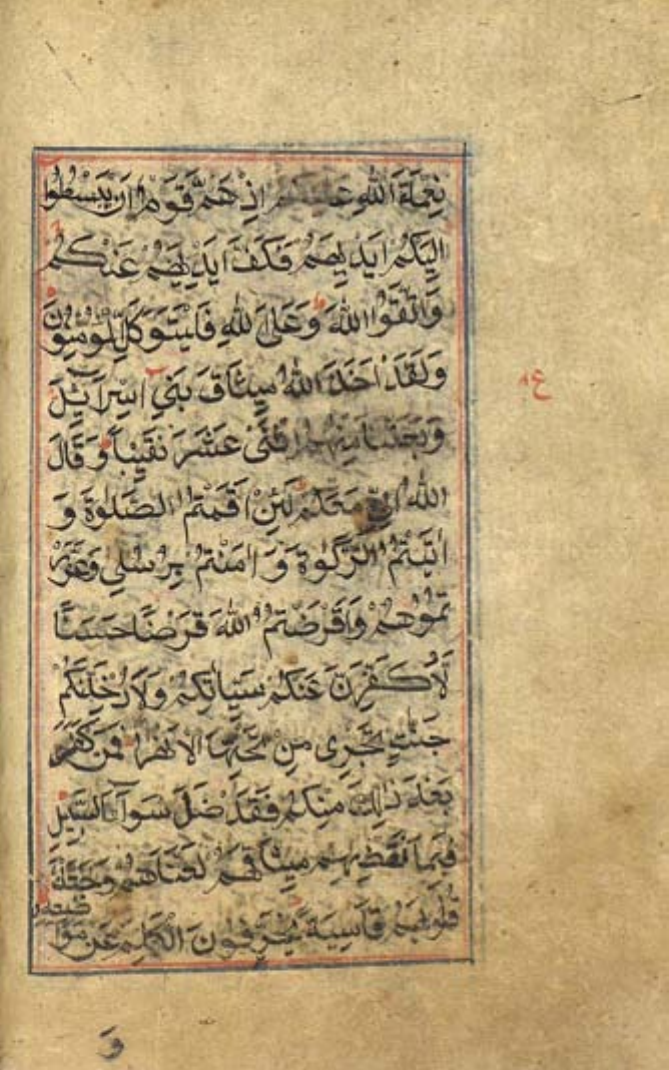 نِعْمَةَ اللهِ عَلَيْكُمْ اِذْ هَمَّ قَوْمٌ اَنْ يَبْسُطُوا
اِلَيْكُمْ اَيْدِيَهُمْ فَكَفَّ اَيْدِيَهُمْ عَنْكُمْ
وَاتَّقُوا اللهَ وَعَلَى اللهِ فَلْيَتَوَكَّلِ الْمُؤْمِنُوْنَ
وَلَقَدْ اَخَذَ اللهُ مِيْثَاقَ بَنِيْ اِسْرَآئِيْلَ
وَبَعَثْنَا مِنْهُمُ اثْنَيْ عَشَرَ نَقِيْبًا وَقَالَ
اللهُ اِنِّيْ مَعَكُمْ لَئِنْ اَقَمْتُمُ الصَّلٰوةَ وَ
اٰتَيْتُمُ الزَّكٰوةَ وَاٰمَنْتُمْ بِرُسُلِيْ وَعَزَّرْ
تُمُوْهُمْ وَاَقْرَضْتُمُ اللهَ قَرْضًا حَسَنًا
لَاُكَفِّرَنَّ عَنْكُمْ سَيِّاٰتِكُمْ وَلَاُدْخِلَنَّكُمْ
جَنّٰتٍ تَجْرِيْ مِنْ تَحْتِهَا الْاَنْهٰرُ فَمَنْ كَفَرَ
بَعْدَ ذٰلِكَ مِنْكُمْ فَقَدْ ضَلَّ سَوَآءَ السَّبِيْلِ
فَبِمَا نَقْضِهِمْ مِيْثَاقَهُمْ لَعَنّٰاهُمْ وَجَعَلْنَا
قُلُوْبَهُمْ قَاسِيَةً يُحَرِّفُوْنَ الْكَلِمَ عَنْ مَوَا
ضِعِهٖ
وَ
ع